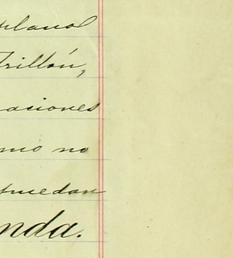 plano
Trillón,
aciones
mo no
puedan
nda.